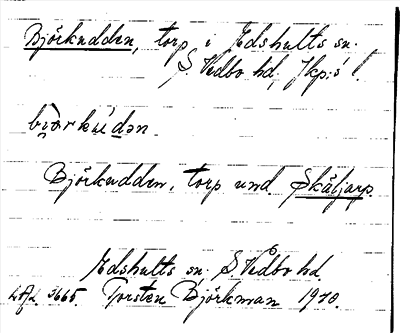 Björkudden, torp i Edshults sn.
S. Vedbo hd, Jkp:s l.
Björkudden, torp und. Skäljarp.
Edshults sn, S. Vedbo hd
3665. Torsten Björkman 1910.